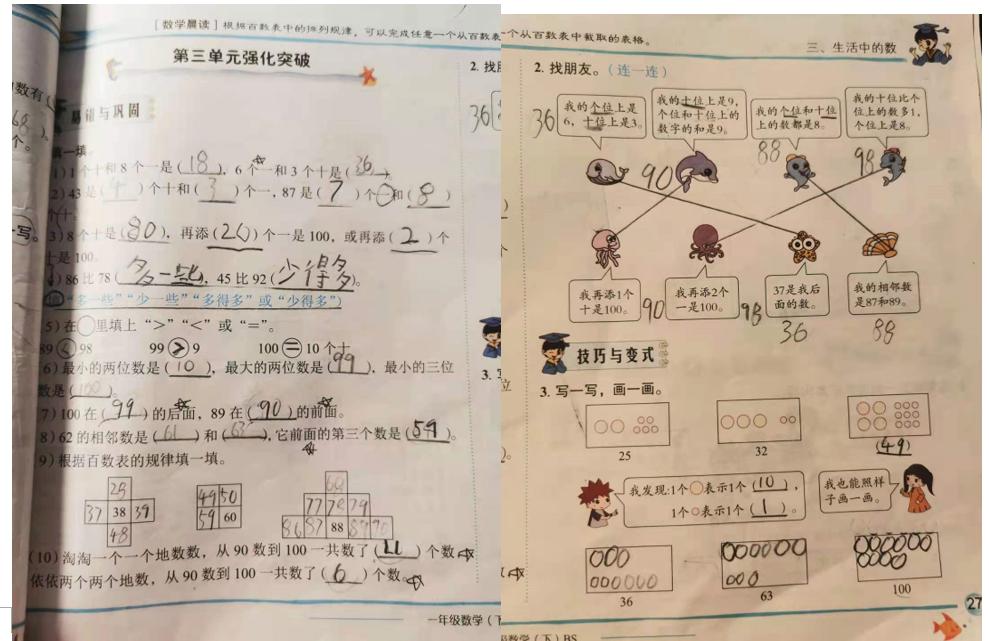 [数学晨读] 根据百数表中的排列规律，可以完成任意一个从百数表
第三单元强化突破
数有(
68
)。
个。
写。
易错与巩固
填一填。
1) 1个十和8个一是( 18 )，6个一和3个十是( 36 )。
2) 43是( 4 )个十和( 3 )个一，87是( 7 )个一和( 8 )
个十。
3) 8个十是( 80 )，再添( 20 )个一是100，或再添( 2 )个
十是100。
4) 86比78( 多一些 )，45比92( 少得多 )。
“多一些”“少一些”“多得多”或“少得多”)
5) 在○里填上“>”“<”或“=”。
89 < 98 99 > 9 100 = 10个十
6) 最小的两位数是( 10 )，最大的两位数是( 99 )，最小的三位
数是( 100 )。
7) 100在( 99 )的后面，89在( 90 )的前面。
8) 62的相邻数是( 61 )和( 63 )，它前面的第三个数是( 59 )。
9) 根据百数表的规律填一填。
28
37 38 39
48
49 50
59 60
68
77 78 79
86 87 88 89 90
(10) 淘淘一个一个地数数，从90数到100一共数了( 11 )个数
依依两个两个地数，从90数到100一共数了( 6 )个数。
一年级数学(下
2. 找朋
36
3. 写
一个从百数表中截取的表格。
三、生活中的数
2. 找朋友。(连一连)
36
我的个位上是
6，十位上是3。
我的十位上是9，
个位和十位上的
数字的和是9。
90
我的个位和十位
上的数都是8。
88
我的十位比个
位上的数多1，
个位上是8。
98
我再添1个
十是100。
90
我再添2个
一是100。
98
37是我后
面的数。
36
我的相邻数
是87和89。
88
技巧与变式
3. 写一写，画一画。
25
32
(49)
我发现：1个○表示1个( 10 )，
1个○表示1个( 1 )。
我也能照样
子画一画。
36
63
100
27
级数学(下) BS